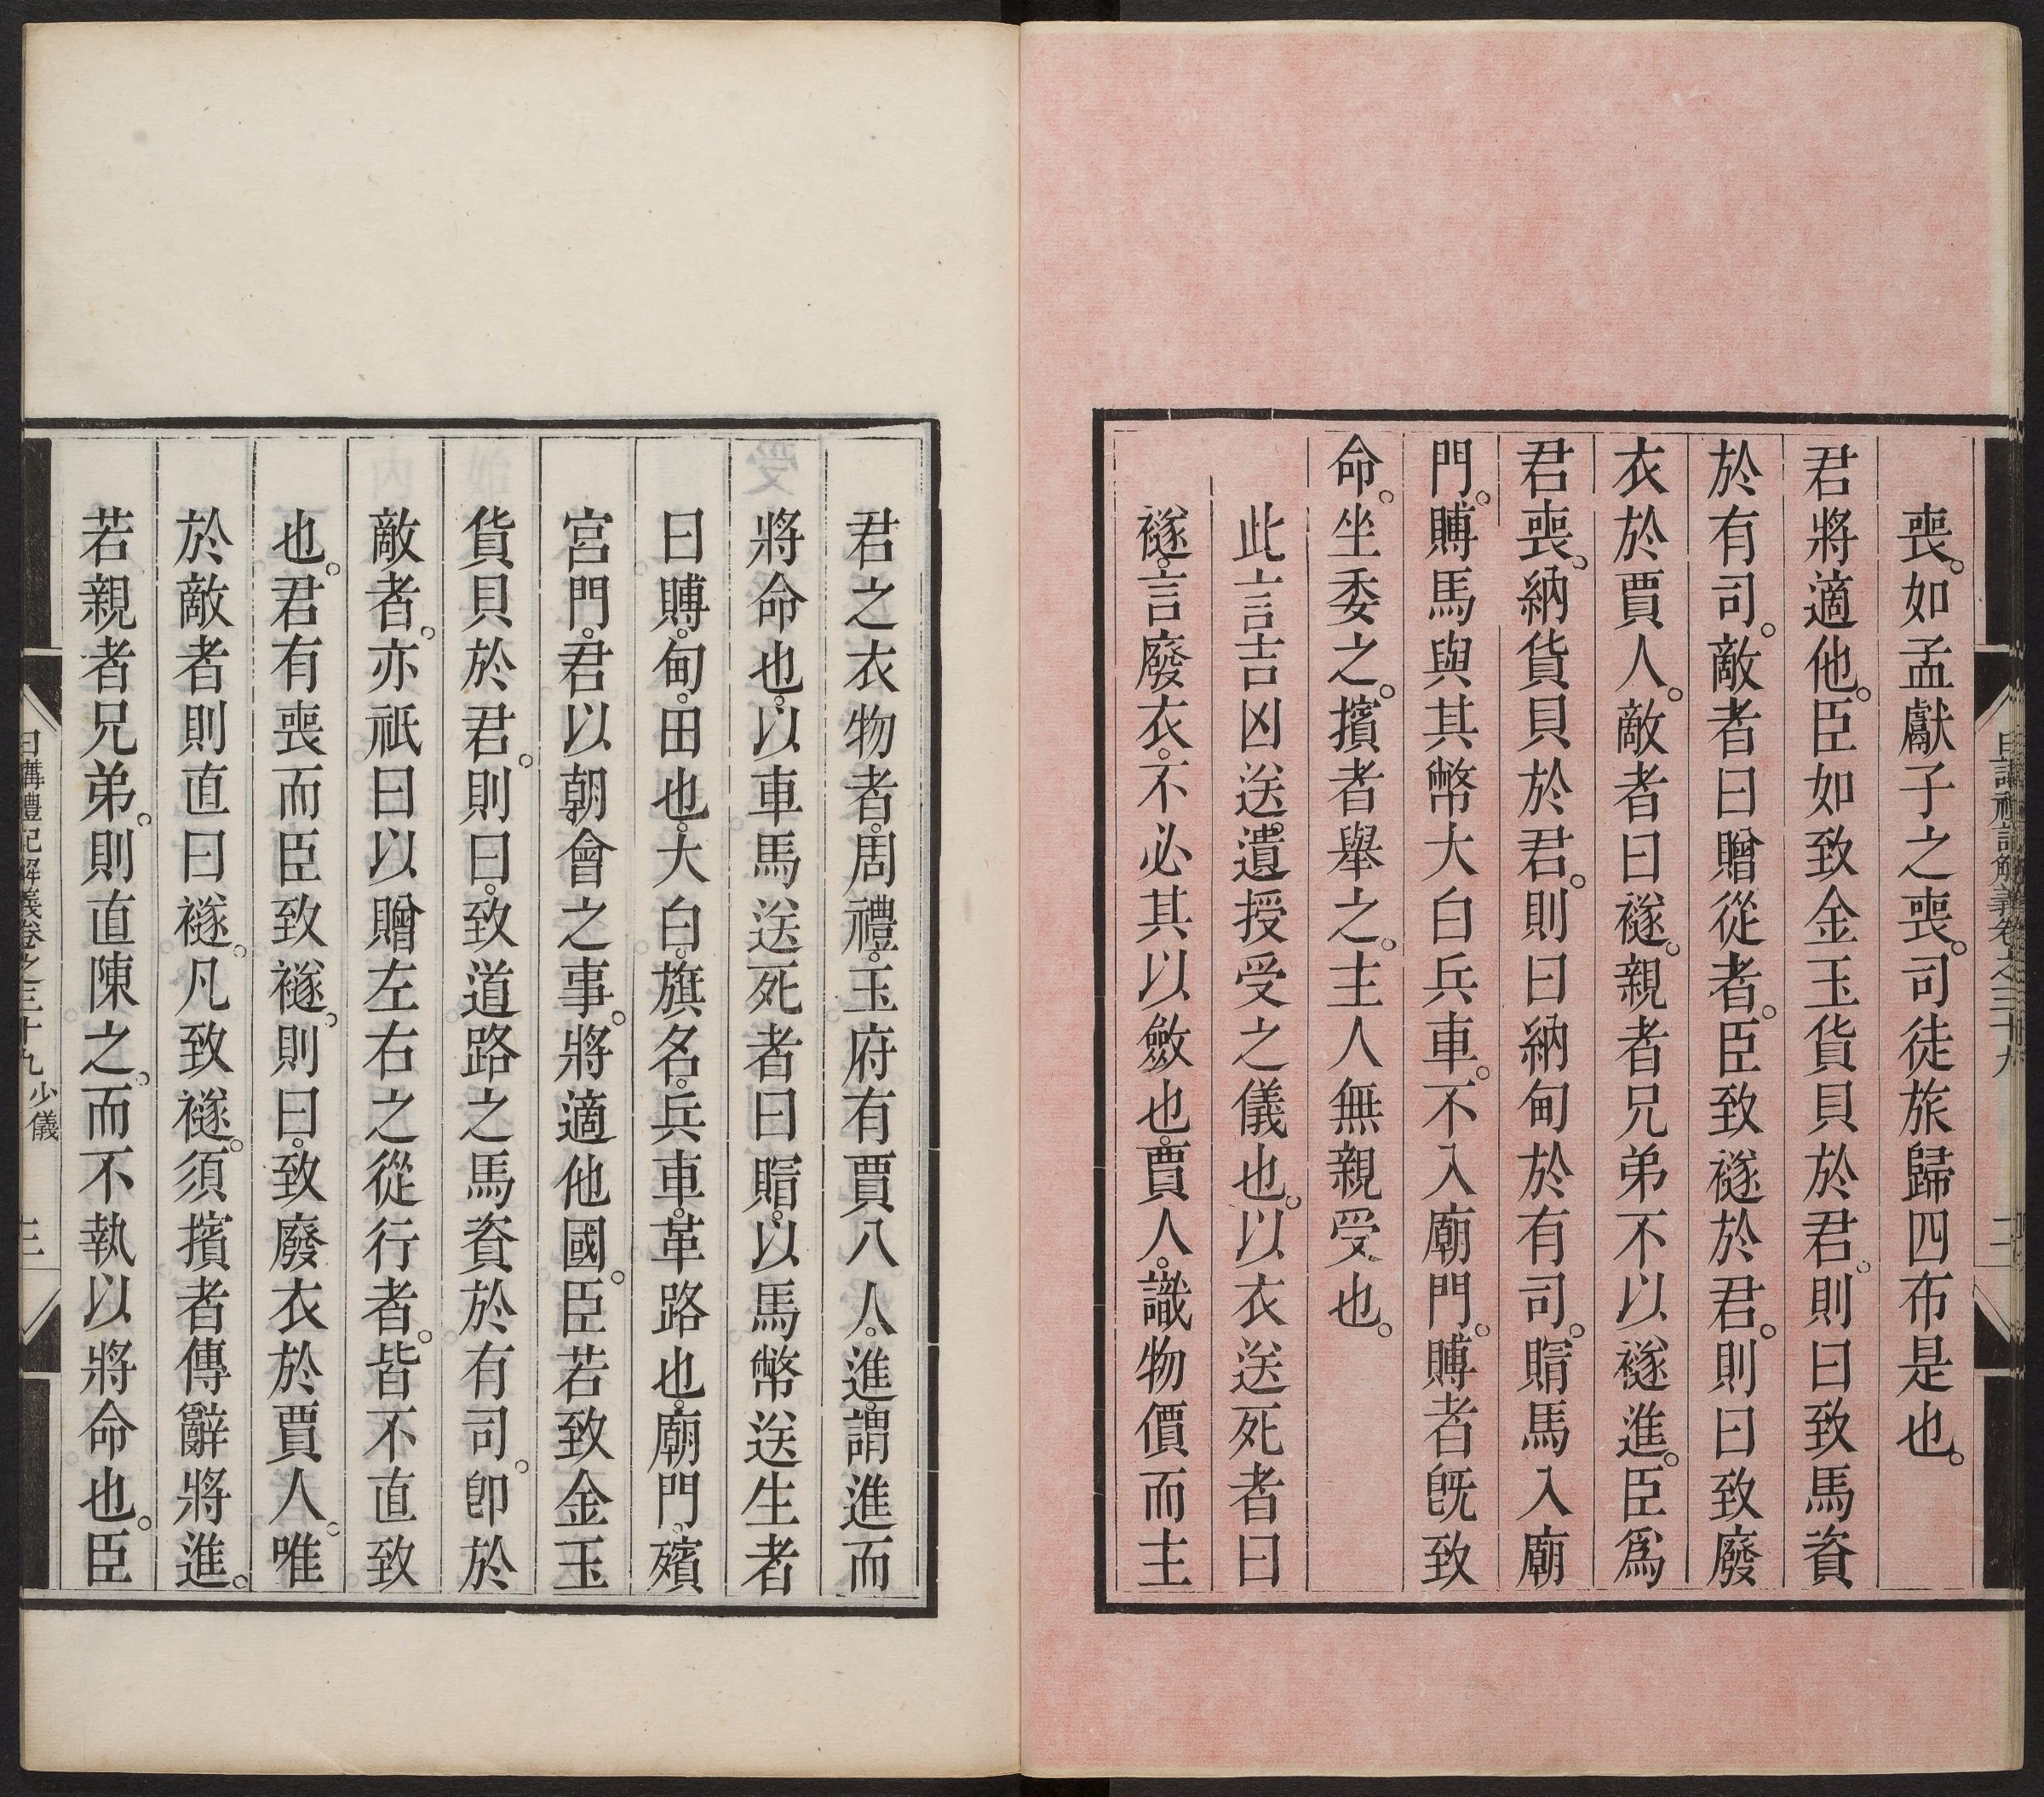 日講禮記解義卷之三十九
二
喪。如孟獻子之喪。司徒旅歸四布是也。
君將適他。臣如致金玉貨貝於君。則曰致馬資
於有司。敵者曰贈從者。臣致襚於君。則曰致廢
衣於賈人。敵者曰襚。親者兄弟不以襚進。臣爲
君喪。納貨貝於君。則曰納甸於有司。賵馬入廟
門。賻馬與其幣大白兵車。不入廟門。賻者旣致
命。坐委之。擯者舉之。主人無親受也。
此言吉凶送遺授受之儀也。以衣送死者曰
襚。言廢衣。不必其以斂也。賈人。識物價而主
君之衣物者。周禮。玉府有賈八人。進。謂進而
將命也。以車馬送死者曰賵。以馬幣送生者
曰賻。甸。田也。大白。旗名。兵車。革路也。廟門。殯
宮門。君以朝會之事。將適他國。臣若致金玉
貨貝於君。則曰。致道路之馬資於有司。卽於
敵者。亦祇曰以贈左右之從行者。皆不直致
也。君有喪而臣致襚。則曰。致廢衣於賈人。唯
於敵者則直曰襚。凡致襚。須擯者傳辭將進。
若親者兄弟。則直陳之。而不執以將命也。臣
日講禮記解義卷之三十九 少儀
三